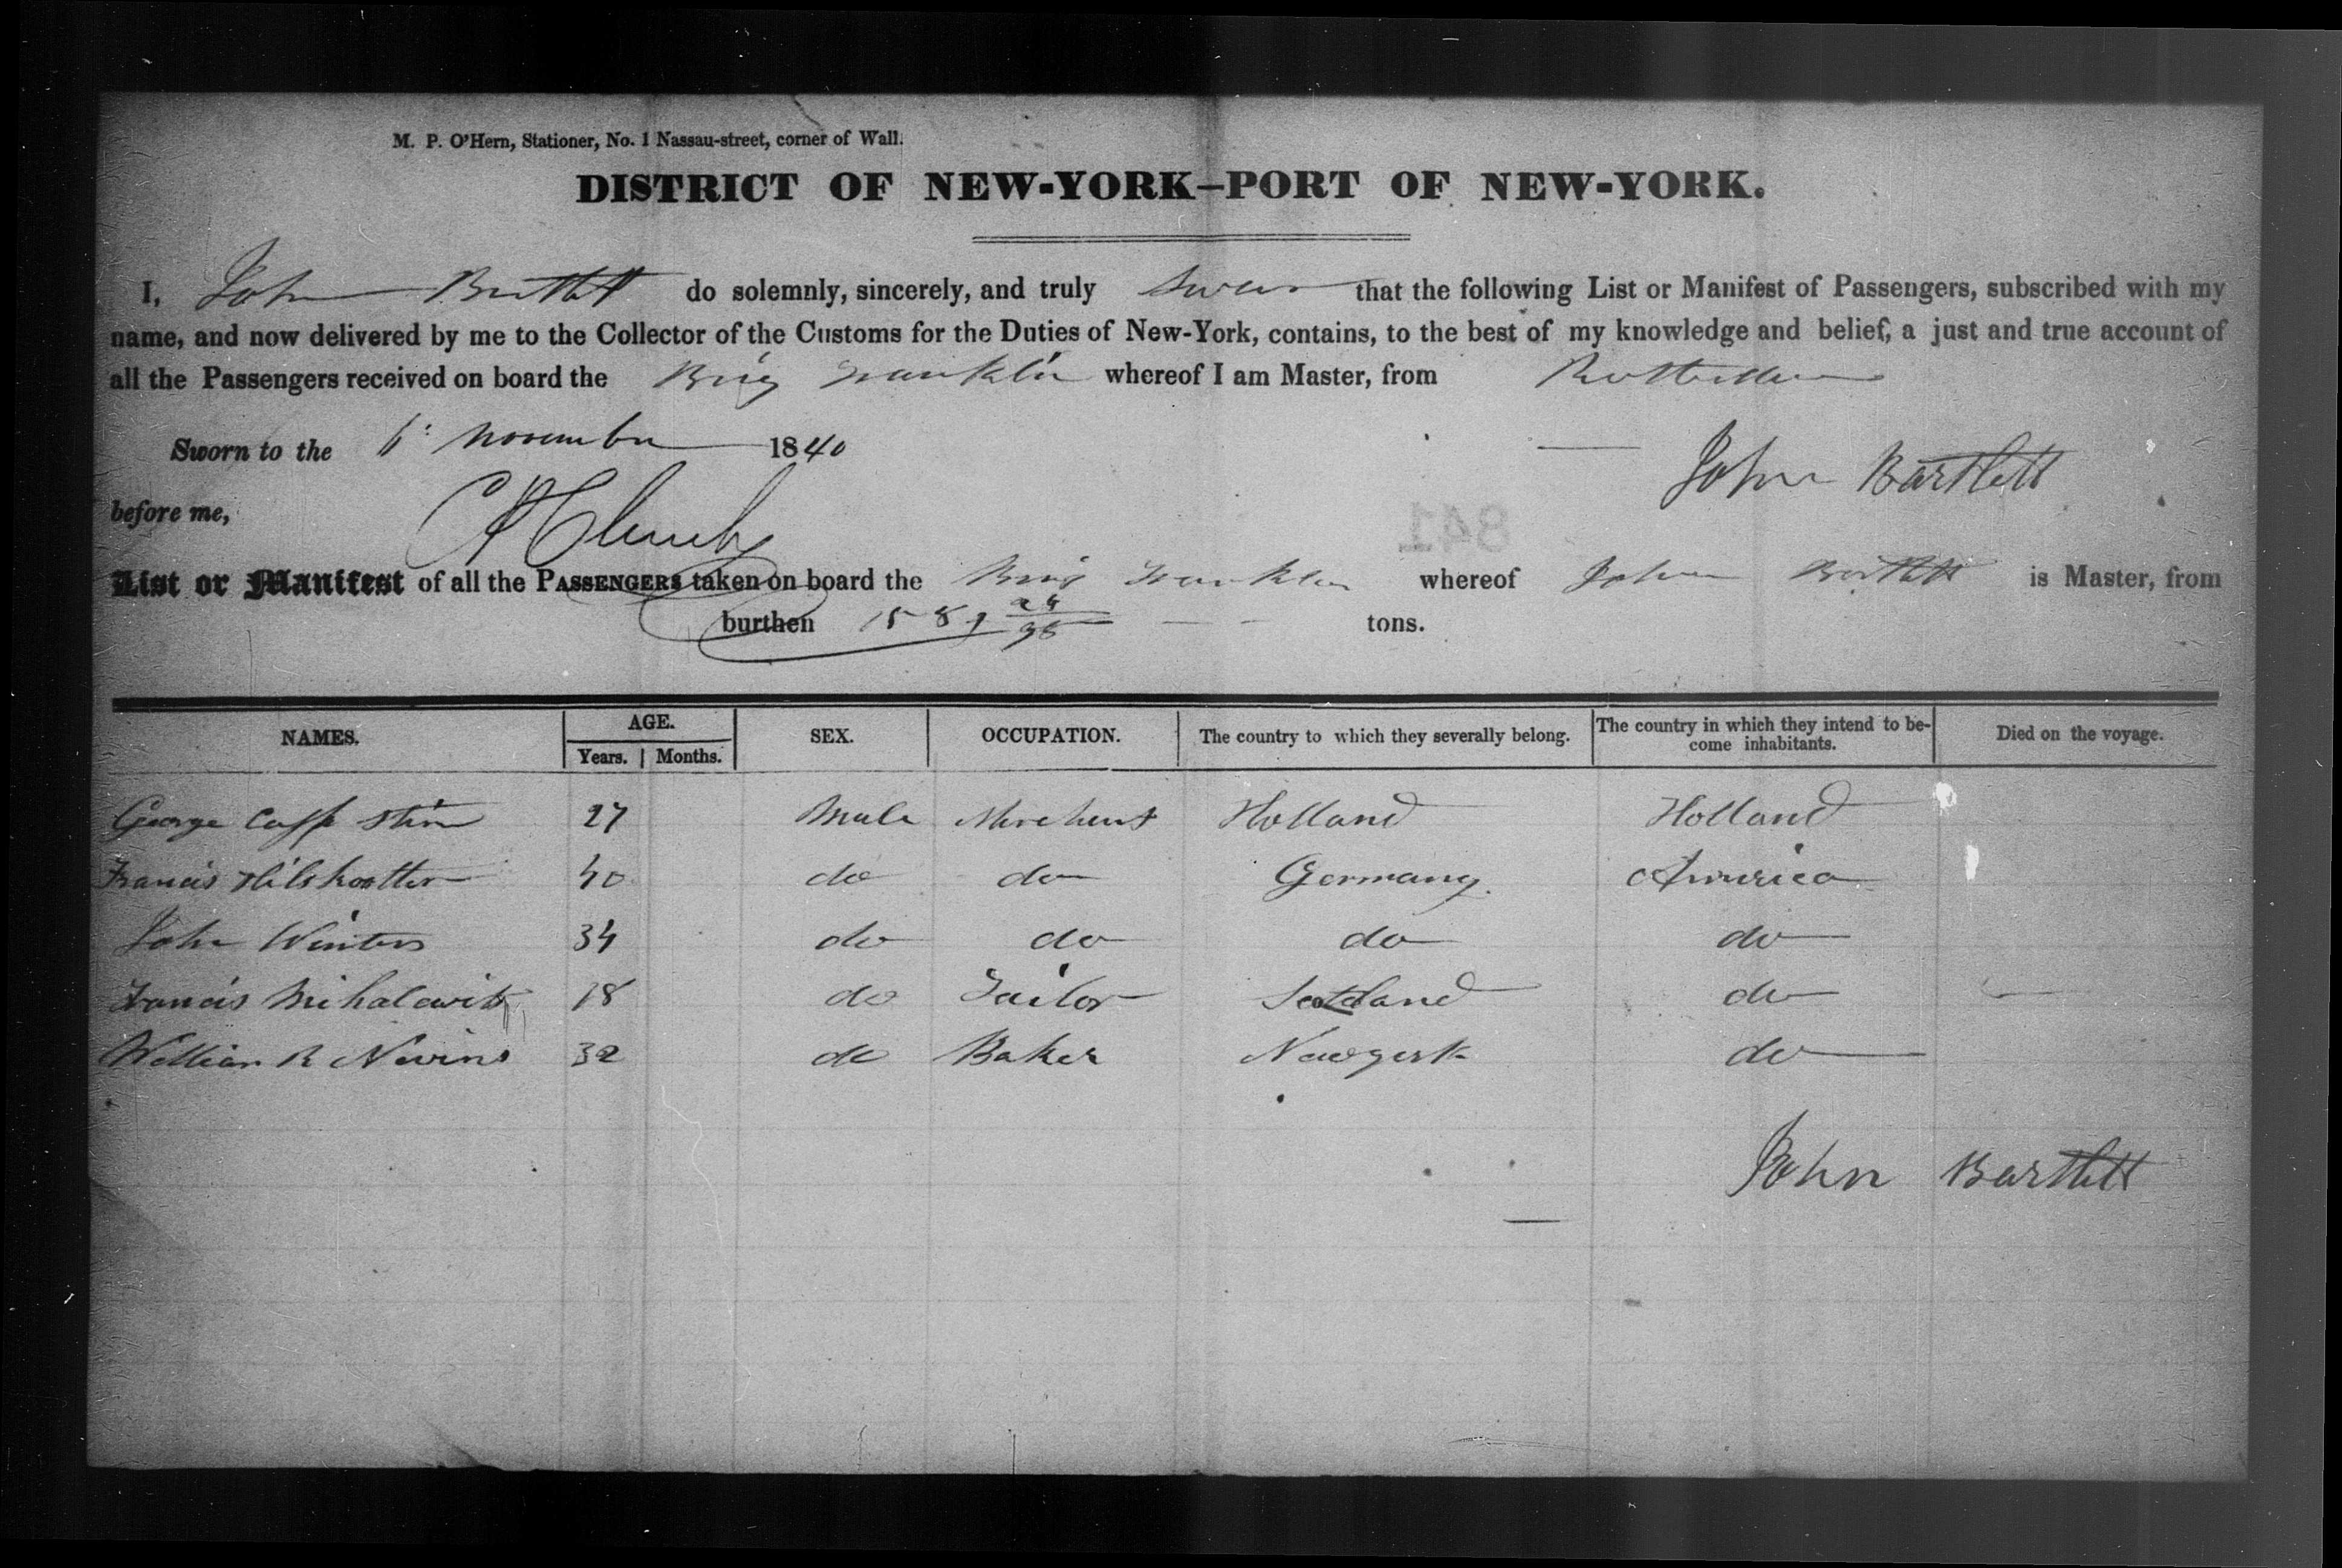 M. P. O'Hern, Stationer, No. 1 Nassau-street, corner of Wall.
DISTRICT OF NEW-YORK—PORT OF NEW-YORK.
I, John Bartlett do solemnly, sincerely, and truly swear that the following List or Manifest of Passengers, subscribed with my
name, and now delivered by me to the Collector of the Customs for the Duties of New-York, contains, to the best of my knowledge and belief, a just and true account of
all the Passengers received on board the Brig Franklin whereof I am Master, from Rotterdam
Sworn to the November 1840
John Bartlett
before me,
841
List or Manifest of all the PASSENGERS taken on board the Brig Franklin whereof John Bartlett is Master, from
burthen 158 tons.
NAMES. AGE. SEX. OCCUPATION. The country to which they severally belong. The country in which they intend to become inhabitants. Died on the voyage.
Years. Months.
George 27 Male Merchant Holland Holland
Francis 40 do do Germany America
John Winters 34 do do do do
Francis Mihalowitz 18 do Tailor do
William R Nevins 32 do Baker Newyork do
John Bartlett